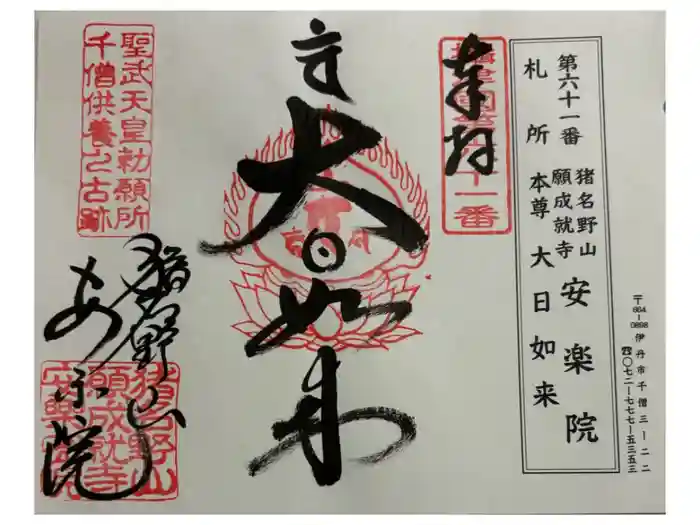 〒664-0898 伊丹市千僧三ー二二
☎〇七二ー七七七ー五三五三
第六十一番
札所
猪名野山
願成就寺
安楽院
本尊 大日如来
奉拝
十一番
大日如来
聖武天皇勅願所
千僧供養之古跡
猪名野山
あん楽院
猪名野山
願成就寺
安樂院